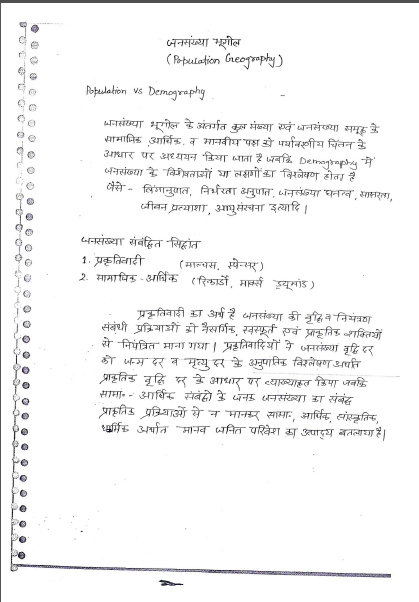 जनसंख्या भूगोल
(Population Geography)
Population vs Demography
जनसंख्या भूगोल के अंतर्गत कुल संख्या एवं जनसंख्या समूह के
सामाजिक, आर्थिक, व मानवीय पक्ष को पर्यावरणीय चिंतन के
आधार पर अध्ययन किया जाता है जबकि Demography में
जनसंख्या के विशेषताओं या लक्षणों का विश्लेषण होता है
जैसे - लिंगानुपात, निर्भरता अनुपात, जनसंख्या घनत्व, साक्षरता,
जीवन प्रत्याशा, आयुसंरचना इत्यादि।
जनसंख्या संबंधित सिद्दांत
1. प्रकृतिवादी (माल्थस, स्पेन्सर)
2. सामाजिक-आर्थिक (रिकार्डो, मार्क्स ड्यूमोंड)
प्रकृतिवादी का अर्थ है जनसंख्या की वृद्धि व नियंत्रण
संबंधी प्रक्रियाओं को नैसर्गिक, स्वस्फूर्त एवं प्राकृतिक शक्तियों
से नियंत्रित माना गया। प्रकृतिवादियों ने जनसंख्या वृद्धि दर
को जन्म दर व मृत्यु दर के अनुपातिक विश्लेषण अर्थात
प्राकृतिक वृद्धि दर के आधार पर व्याख्याकृत किया जबकि
सामा॰ - आर्थिक संबंधों के जनक जनसंख्या का संबंध
प्राकृतिक प्रक्रियाओं से न मानकर सामा॰, आर्थिक, सांस्कृतिक,
धार्मिक अर्थात मानव जनित परिवेश का उत्पाद बतलाया है।